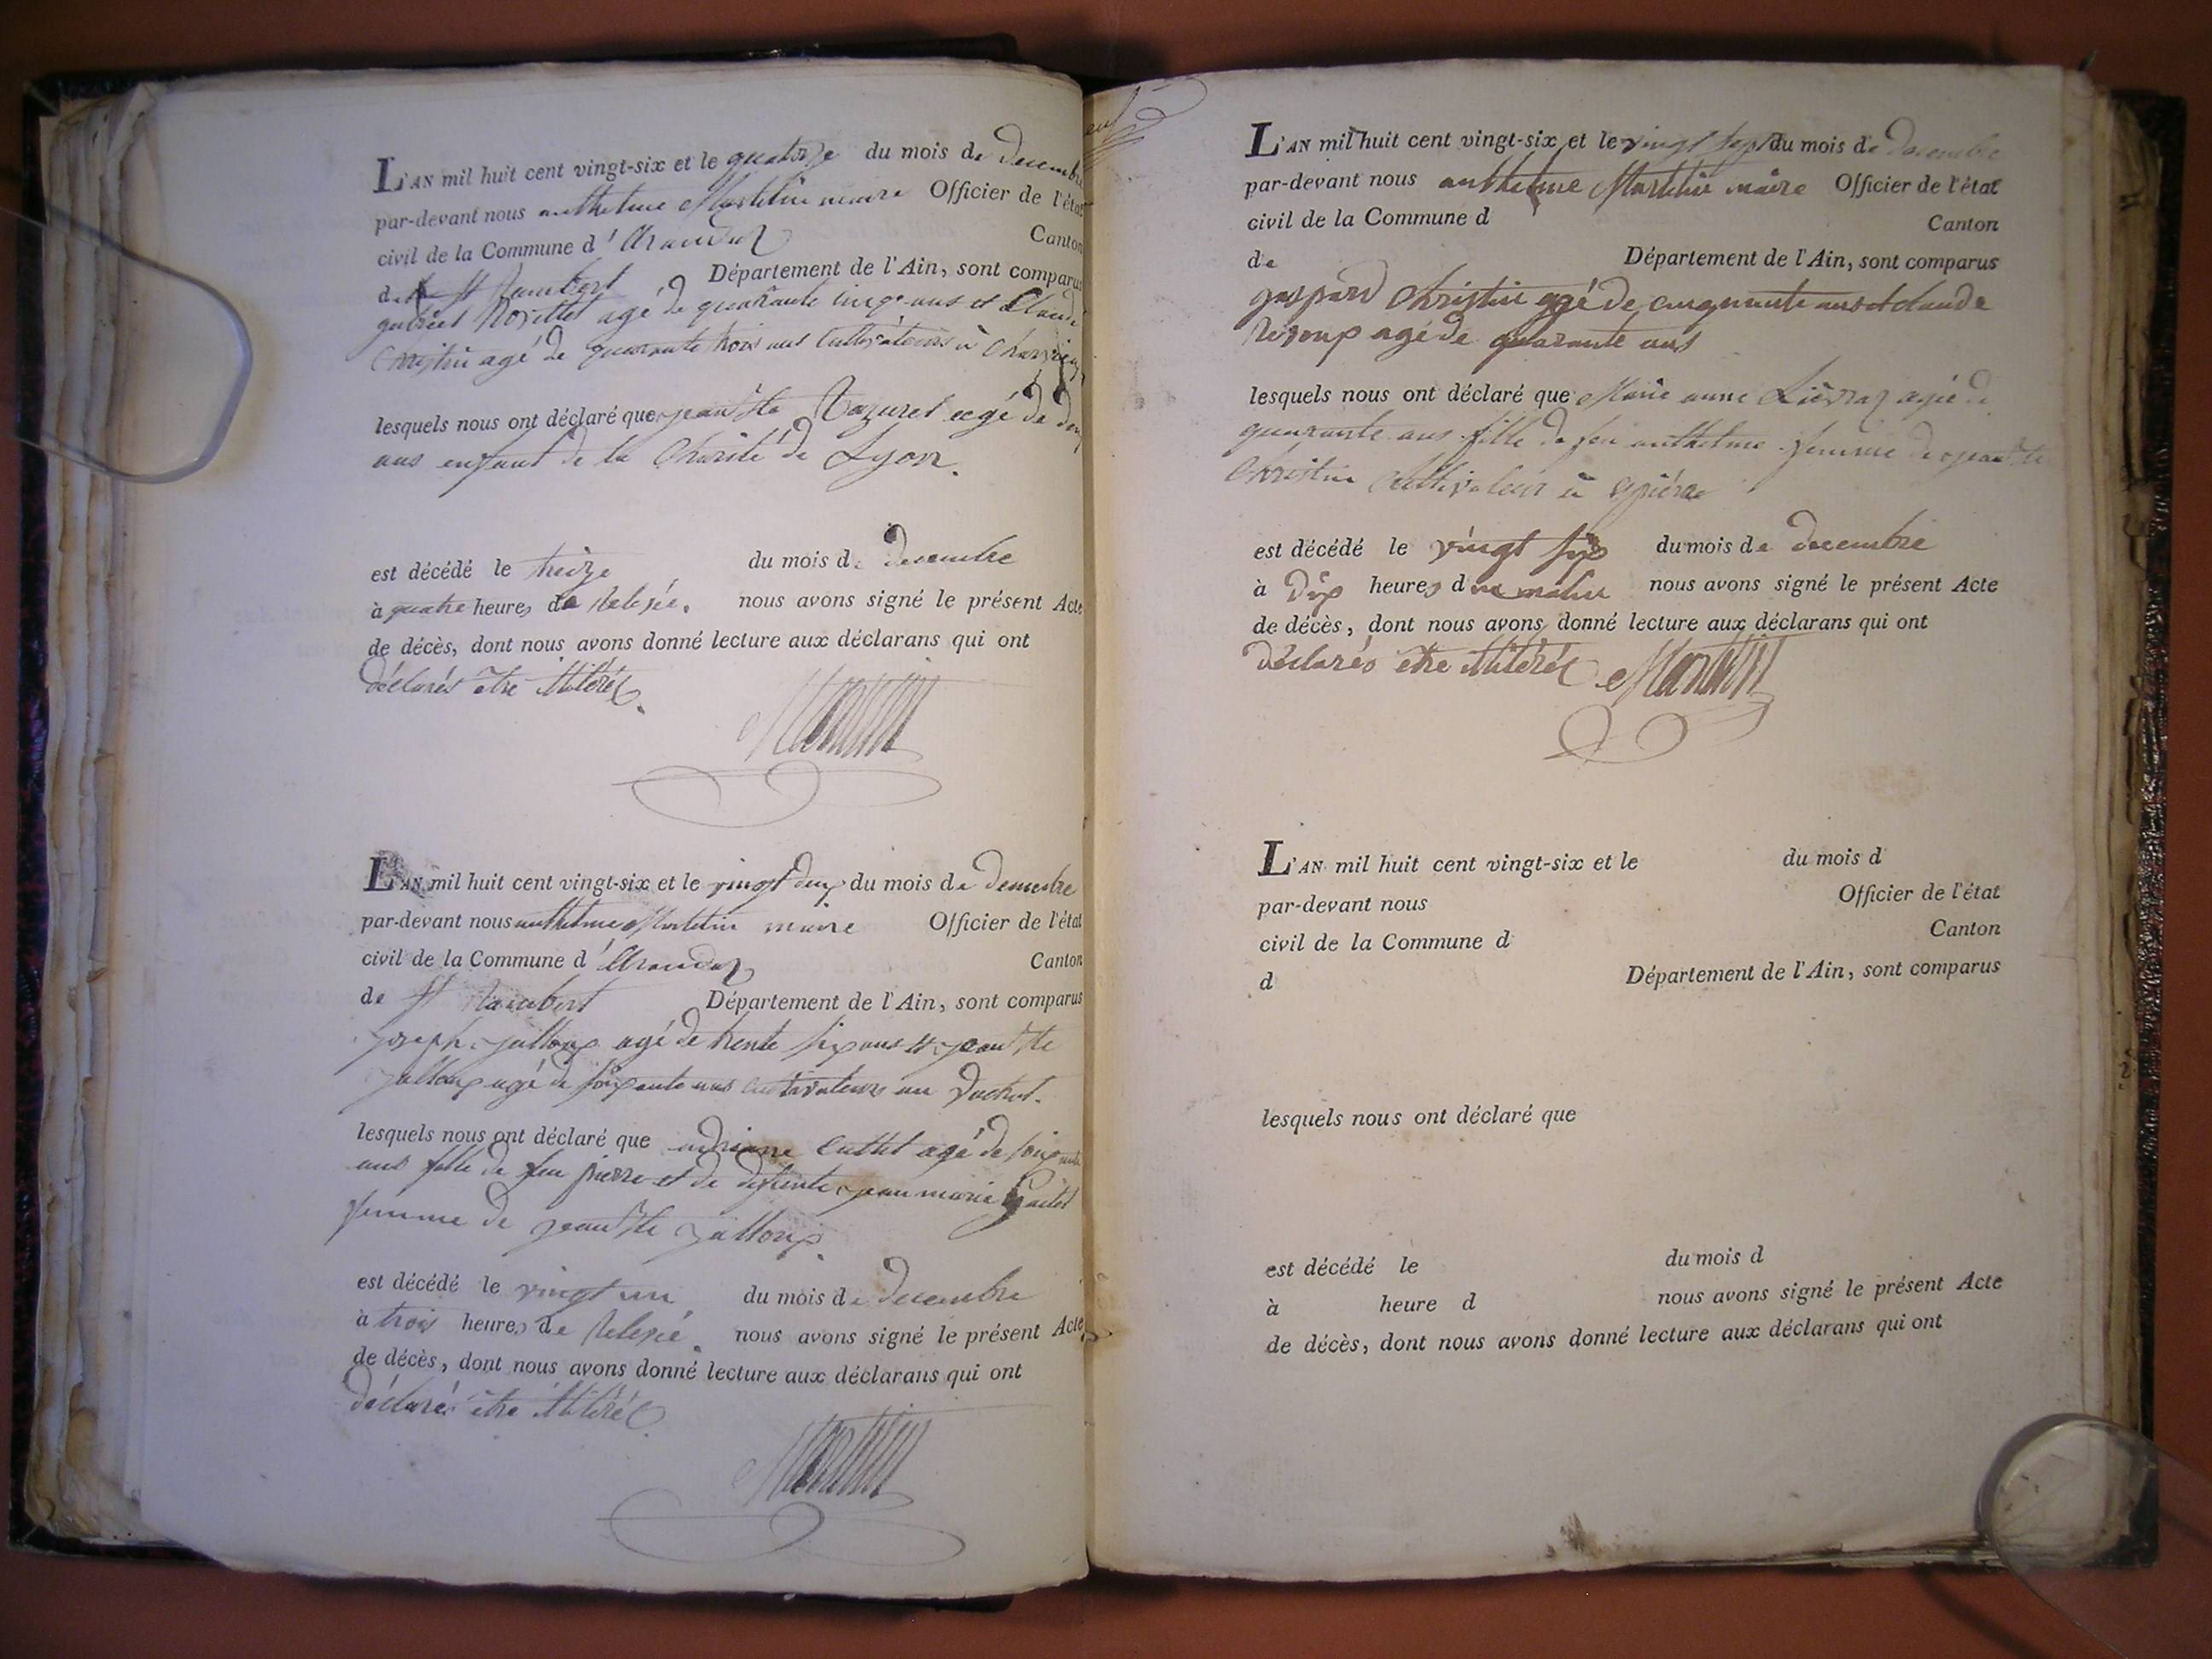 L'AN mil huit cent vingt-six et le quatorze du mois de decembre
par-devant nous anthelme Martelin maire Officier de l'état
civil de la Commune d'Arandas Canton
de St Rambert Département de l'Ain, sont comparus
gabriel agé de quarante cinq ans et Claude
Christin agé de quarante trois ans Cultivateurs à
lesquels nous ont déclaré que jean Bte agé de deux
ans enfant de la Charité de Lyon.
est décédé le treize du mois de decembre
à quatre heures de Relevée. nous avons signé le présent Acte
de décès, dont nous avons donné lecture aux déclarans qui ont
déclarés être illitérés.
Martelin
L'AN mil huit cent vingt-six et le vingt deux du mois de decembre
par-devant nous anthelme Martelin maire Officier de l'état
civil de la Commune d'Arandas Canton
de St Rambert Département de l'Ain, sont comparus
joseph jalloux agé de trente six ans et jean Bte
jalloux agé de soixante ans cultivateurs au
lesquels nous ont déclaré que agé de soixante
ans fille de feu pierre et de defunte jean marie
femme de jean Bte jalloux.
est décédé le vingt un du mois de decembre
à trois heures de Relevée. nous avons signé le présent Acte
de décès, dont nous avons donné lecture aux déclarans qui ont
déclarés être illitérés
Martelin
L'AN mil huit cent vingt-six et le vingt sept du mois de decembre
par-devant nous anthelme Martelin maire Officier de l'état
civil de la Commune d Canton
de Département de l'Ain, sont comparus
gaspard Christin agé de cinquante ans et claude
agé de quarante ans
lesquels nous ont déclaré que Marie anne agée de
quarante ans fille de feu anthelme femme de jean Bte
Christin Cultivateur à
est décédé le vingt six du mois de decembre
à Dix heures du matin nous avons signé le présent Acte
de décès, dont nous avons donné lecture aux déclarans qui ont
déclarés être illitérés Martelin
L'AN mil huit cent vingt-six et le du mois d
par-devant nous Officier de l'état
civil de la Commune d Canton
d Département de l'Ain, sont comparus
lesquels nous ont déclaré que
est décédé le du mois d
à heure d nous avons signé le présent Acte
de décès, dont nous avons donné lecture aux déclarans qui ont